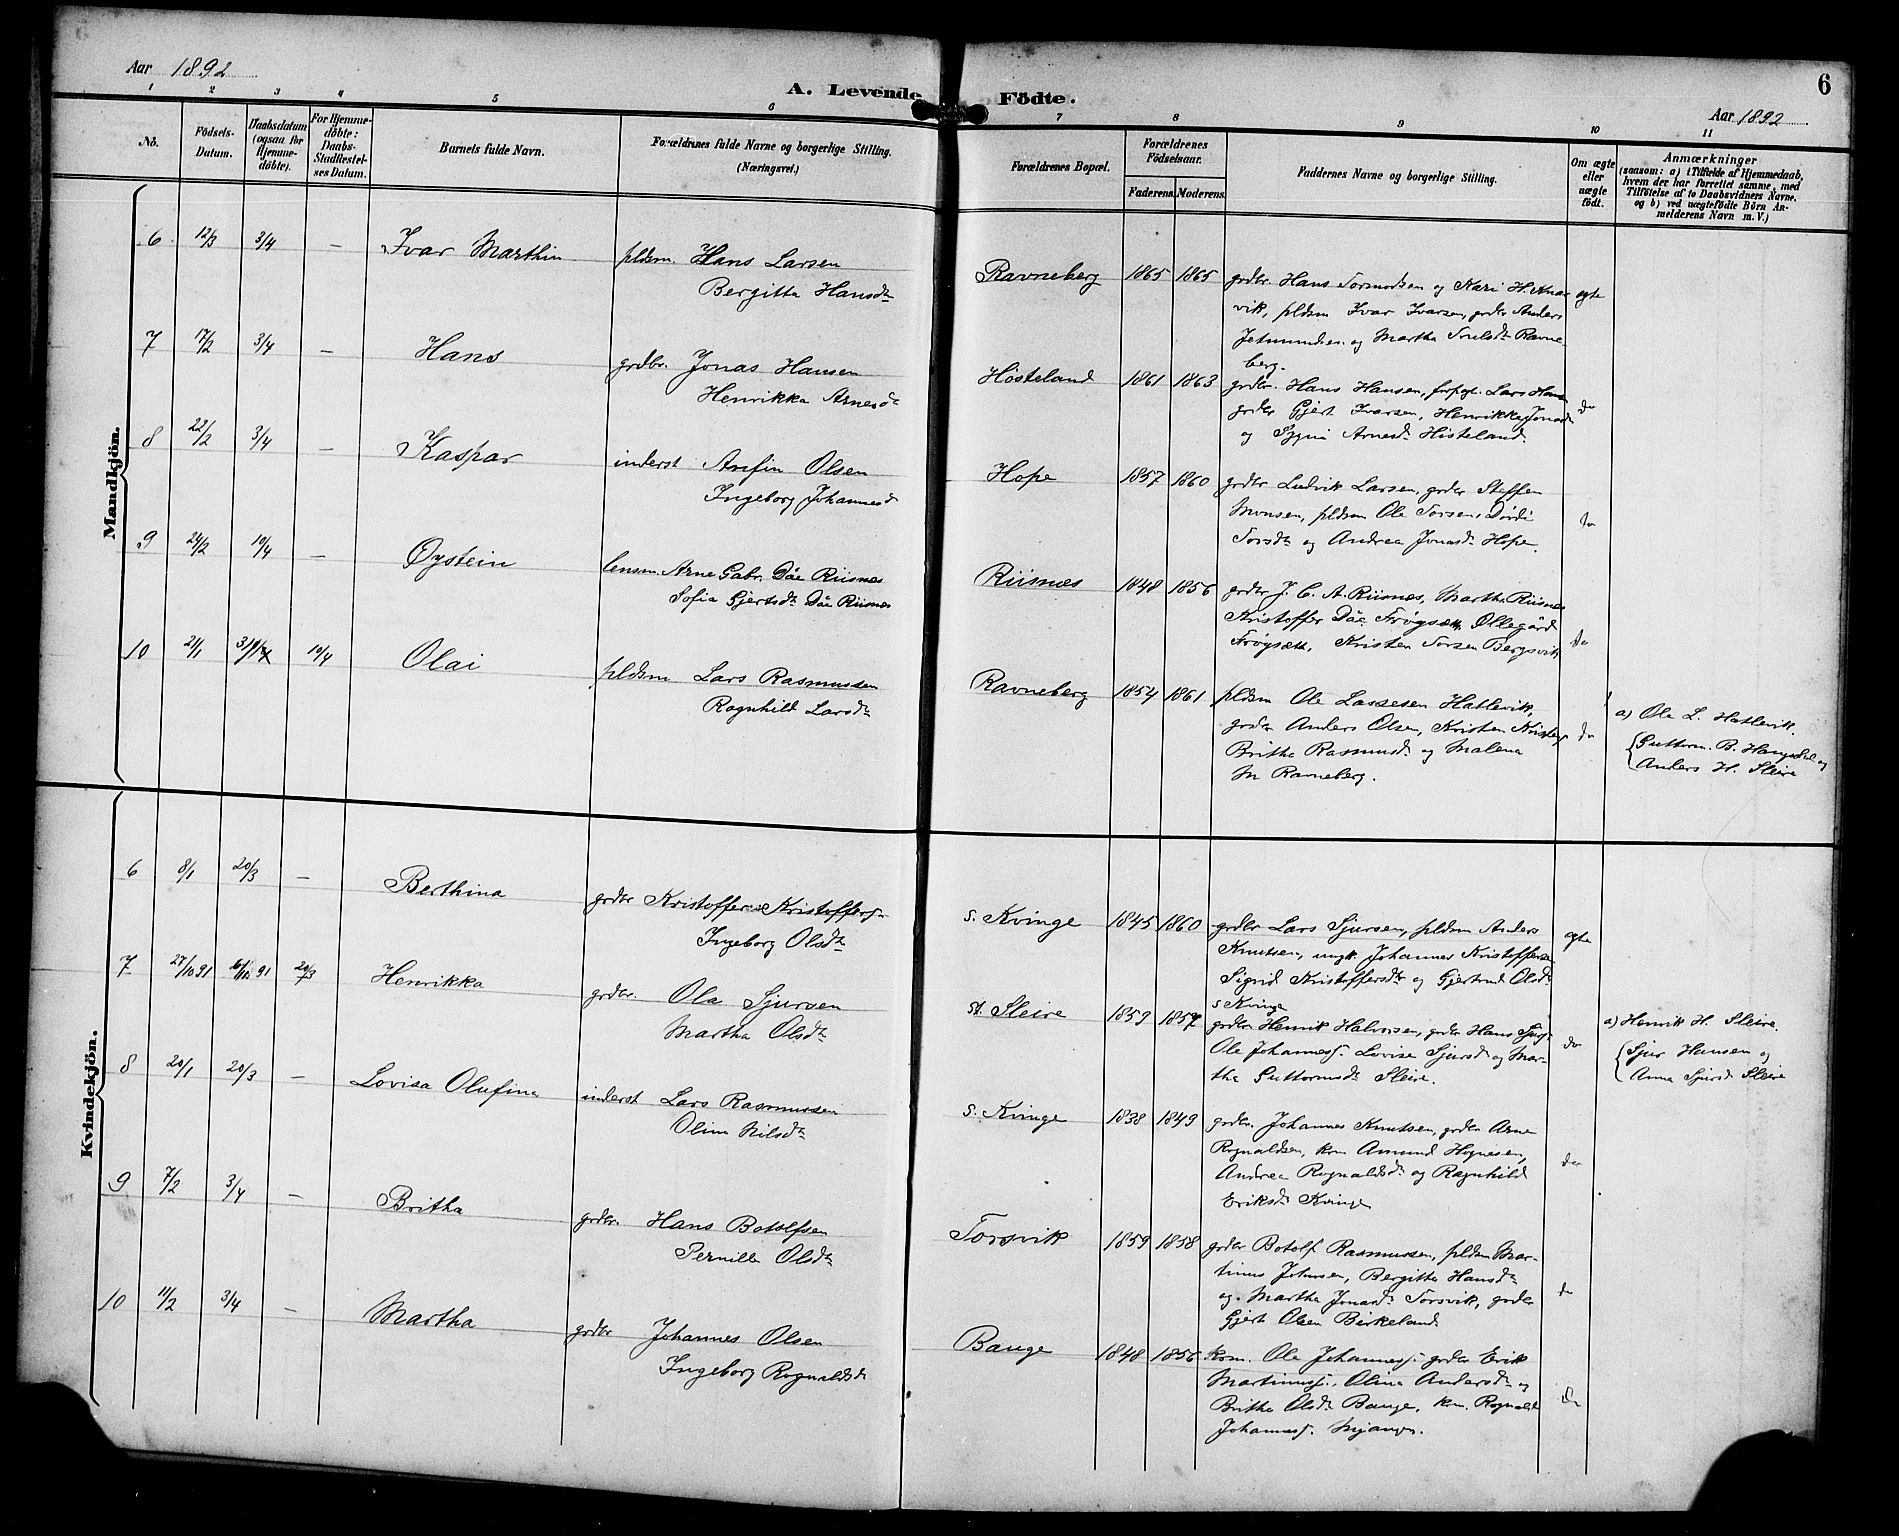 6
Aar 1892
A. Levende Födte.
Aar 1892
1 2 3 4 5 6 7 8 9 10 11
No.
Födsels-Datum.
Daabsdatum (ogsaa for Hjemme-döbte).
For Hjemme-döbte: Daabs-Stadfæstel-ses Datum.
Barnets fulde Navn.
Forældrenes fulde Navne og borgerlige Stilling.
(Næringsvei.)
Forældrenes Bopæl.
Forældrenes Födselsaar.
Faderens. Moderens.
Faddernes Navne og borgerlige Stilling.
Om ægte eller uægte födt.
Anmærkninger
(saasom: a) i Tilfælde af Hjemmedaab,
hvem der har forrettet samme, med
Tilföielse af to Daabsvidners Navne.
og b) ved uægtefödte Börn An-
melderens Navn m. V.)
Mandkjön.
6 12/3 3/4 — Ivar Marthin pldsm. Hans Larsen
Bergitta Hansdt
Ravneberg 1865 1865 grdbr. Hans Tormodsen og Kari H. Knar
vik, pldsm Ivar Ivarsen, grdbr Anders
Jetmundsen og Martha Trulsdt Ravne-
berg.
ægte
7 17/2 3/4 — Hans grdbr. Jonas Hansen
Henrikka Arnesdt
Hösteland 1861 1863 grdbr. Hans Hansen, Lars Hans
grdbr Gjert Ivarsen, Henrikke Jonsdt
og Arnesdt Histeland.
do
8 22/2 3/4 — Kaspar inderst Anfin Olsen
Ingeborg Johannesd
Hope 1857 1860 grdbr Ludvik Larsen, grdbr Steffen
Monsen, pldsm Ole Torsen, Dordi
Torsdt og Andrea Jonasdt Hope.
do
9 24/2 10/4 — Øystein lensm. Arne Gabr. Dåe Riisnæs
Sofia Gjertsdt Dåe Riisnæs
Riisnæs 1848 1856 grdbr J. C. A. Riisnæs, Martha Riisnæs
Kristoffer Dåe Frøysæth, Øllegård
Frøysæth, Kristen Torsen Bergsvik
do
10 21/1 10/4 Olai pldsm Lars Rasmussen
Ragnhild Larsdt
Ravneberg 1854 1861 pldsm Ole Lassesen Hatlevik,
grdbr Anders Olsen, Kristen
Britha Rasmusdt og Malena
M Ravneberg.
do
a) Ole L. Hatlevik.
Guttorm. B. og
Anders H. Sleire
Kvindekjön.
6 8/1 20/3 — Berthina grdbr Kristoffer Kristoffers
Ingeborg Olsdt
s. Kvinge 1845 1860 grdbr Lars Sjursen, pldsm Anders
Knutsen, ungk. Johannes Kristoffersen
Sigrid Kristoffersdtr og Gjertrud Olsdt
s Kvinge
ægte
7 27/10 91 91 20/3 Henrikka grdbr. Ola Sjursen
Martha Olsdt
st. Sleire 1859 1857 grdbr Henrik Halvorsen, grdbr Hans Sjurs
Ole Johannes. Lovise Sjursdt og Mar-
tha Guttormsdt Sleire.
do
a) Henrik H. Sleire.
Sjur Hansen og
Anna Sjursdt Sleire
8 20/1 20/3 — Lovisa Olufina inderst Lars Rasmussen
Olina Nilsdt
s. Kvinge 1838 1849 grdbr. Johannes Knutsen, grdbr Arne
Rognaldsen, kom Amund Hognesen,
Andrea Rognaldsdt og Ragnhild
Eriksdt Kvinge
do
9 7/2 3/4 — Britha grdbr. Hans Botolfsen
Pernille Olsdt
Torsvik 1859 1858 grdbr Botolf Rasmussen, pldsm Mar-
tinus Johnsen, Bergitha Hansdt
og. Martha Jonasdt Torsvik, grdbr
Gjert Olsen Birkeland
do
10 11/2 3/4 — Martha grdbr Johannes Olsen
Ingeborg Rognaldsdt
Bauge 1848 1856 kom. Ole Johannes. grdbr Erik
Martinus., Olina Andersdt og
Britha Olsdt Bauge, kom. Rognald
Johannes. Mjanger.
do